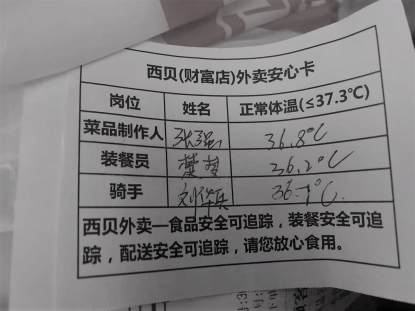 西贝(财富店)外卖安心卡
岗位 姓名 正常体温(≤37.3℃)
菜品制作人 张强 36.8℃
装餐员 36.2℃
骑手 36.1℃
西贝外卖—食品安全可追踪,装餐安全可追
踪,配送安全可追踪,请您放心食用。